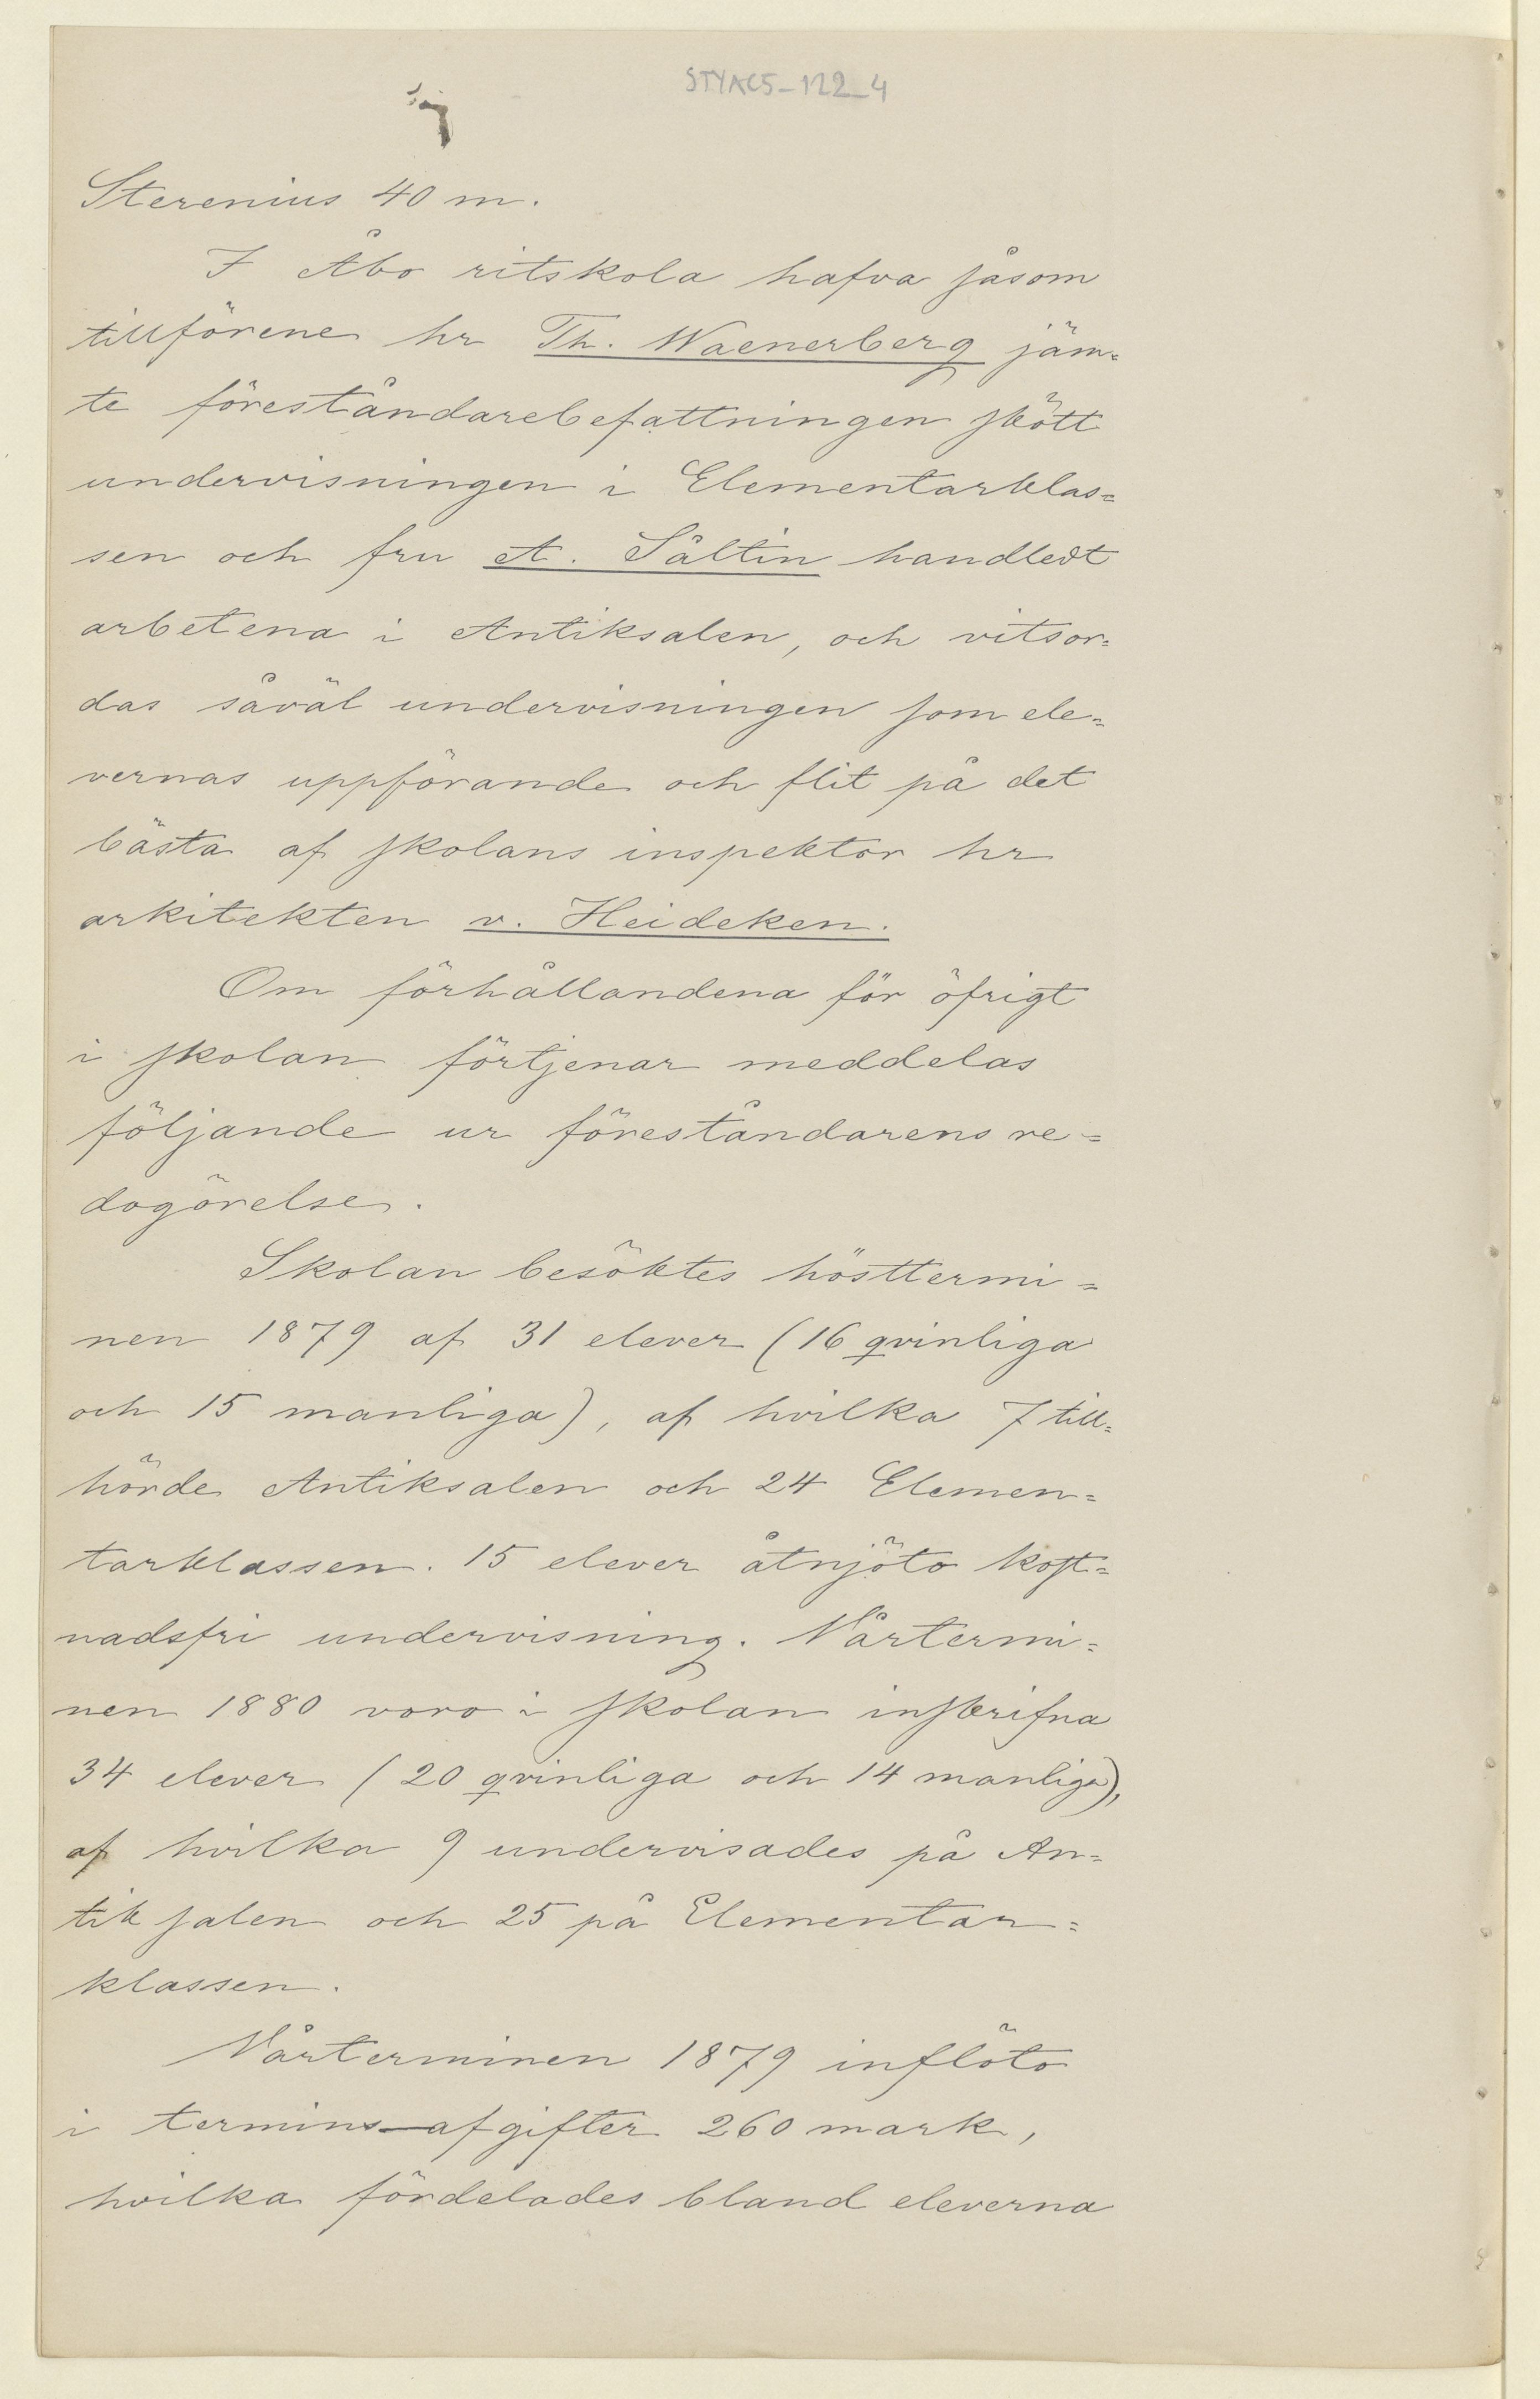 STYAC5-122_4
Sterenius 40 m.
I Åbo ritskola hafva såsom
tillförene hr Th. Waenerberg jäm=
te föreståndarebefattningen skött
undervisningen i Elementarklas=
sen och fru A. Sältin handledt
arbetena i Antiksalen, och vitsor=
das såväl undervisningen som ele=
vernas uppförande och flit på det
bästa af skolans inspektor hr
arkitekten v. Heideken.
Om förhållandena för öfrigt
i skolan förtjenar meddelas
följande ur föreståndarens re=
dogörelse.
Skolan besöktes hösttermi=
nen 1879 af 31 elever (16 qvinliga
och 15 manliga), af hvilka 7 till=
hörde Antiksalen och 24 Elemen=
tarklassen. 15 elever åtnjöto kost=
nadsfri undervisning. Vårtermi=
nen 1880 voro i skolan inskrifna
34 elever (20 qvinliga och 14 manliga),
af hvilka 9 undervisades på An=
tiksalen och 25 på Elementar=
klassen.
Vårterminen 1879 inflöto
i termins-afgifter 260 mark,
hvilka fördelades bland eleverna